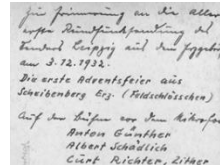 Zur Erinnerung an die aller-
erste Rundfunksendung des
Senders Leipzig aus dem Erzgebirge
am 3.12.1932.
Die erste Adventsfeier aus
Scheibenberg Erz. (Feldschlösschen)
Auf der Bühne vor dem Mikrofon
Anton Günther
Albert Schädlich
Curt Richter, Zither